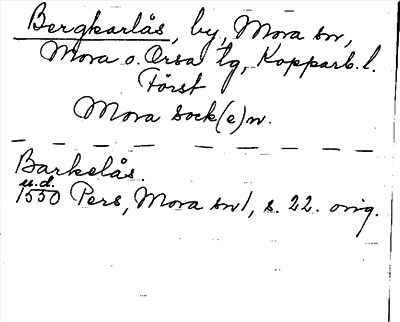 Bergkarlås, by, Mora sn,
Mora o. Orsa tg, Kopparb. l.
Först
Mora sock(e)n.
Barkelås.
u.d.
1550 Pers, Mora sn/, s. 22. orig.